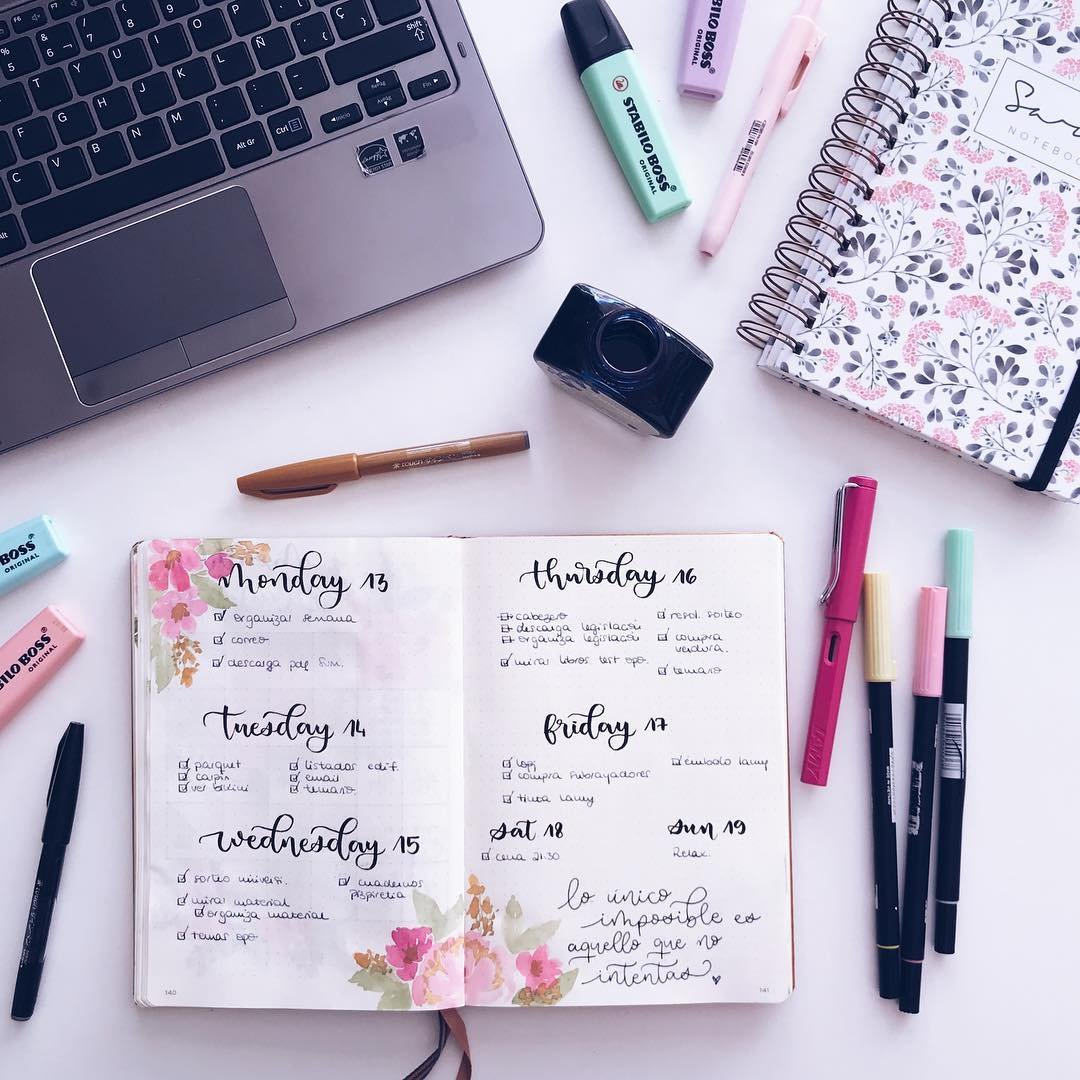 STABILO BOSS
ORIGINAL
BOSS
ORIGINAL
NOTEBOOK
Shift
Ctrl
Alt Gr
Alt
Inicio
Fin
RePág
AvPág
BOSS
ORIGINAL
STABILO BOSS
ORIGINAL
LAMY
monday 13
organizar semana
correo
descarga pdf
tuesday 14
parquet
carpin
ver bikini
listados edif.
email
temario
wednesday 15
sorteo universi.
mirar material
organiza material
temas opo
cuadernos
pispireta
140
thursday 16
cabezero
descarga legislación
organiza legislación
mirar libros test opo.
resol. sorteo
compra
verdura.
temario
friday 17
lopj
compra subrayadores
tinta lamy
émbolo lamy
sat 18
cena 21:30
sun 19
Relax.
lo único
imposible es
aquello que no
intentas
141